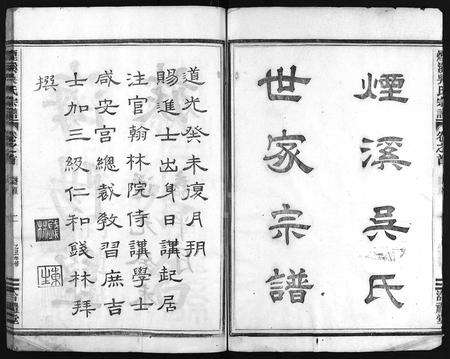 煙溪吳氏
世家宗譜
道光癸未復月朔
賜進士出身日講起居
注官翰林院侍講學士
咸安宮總裁教習庶吉
士加三級仁和錢林拜
撰